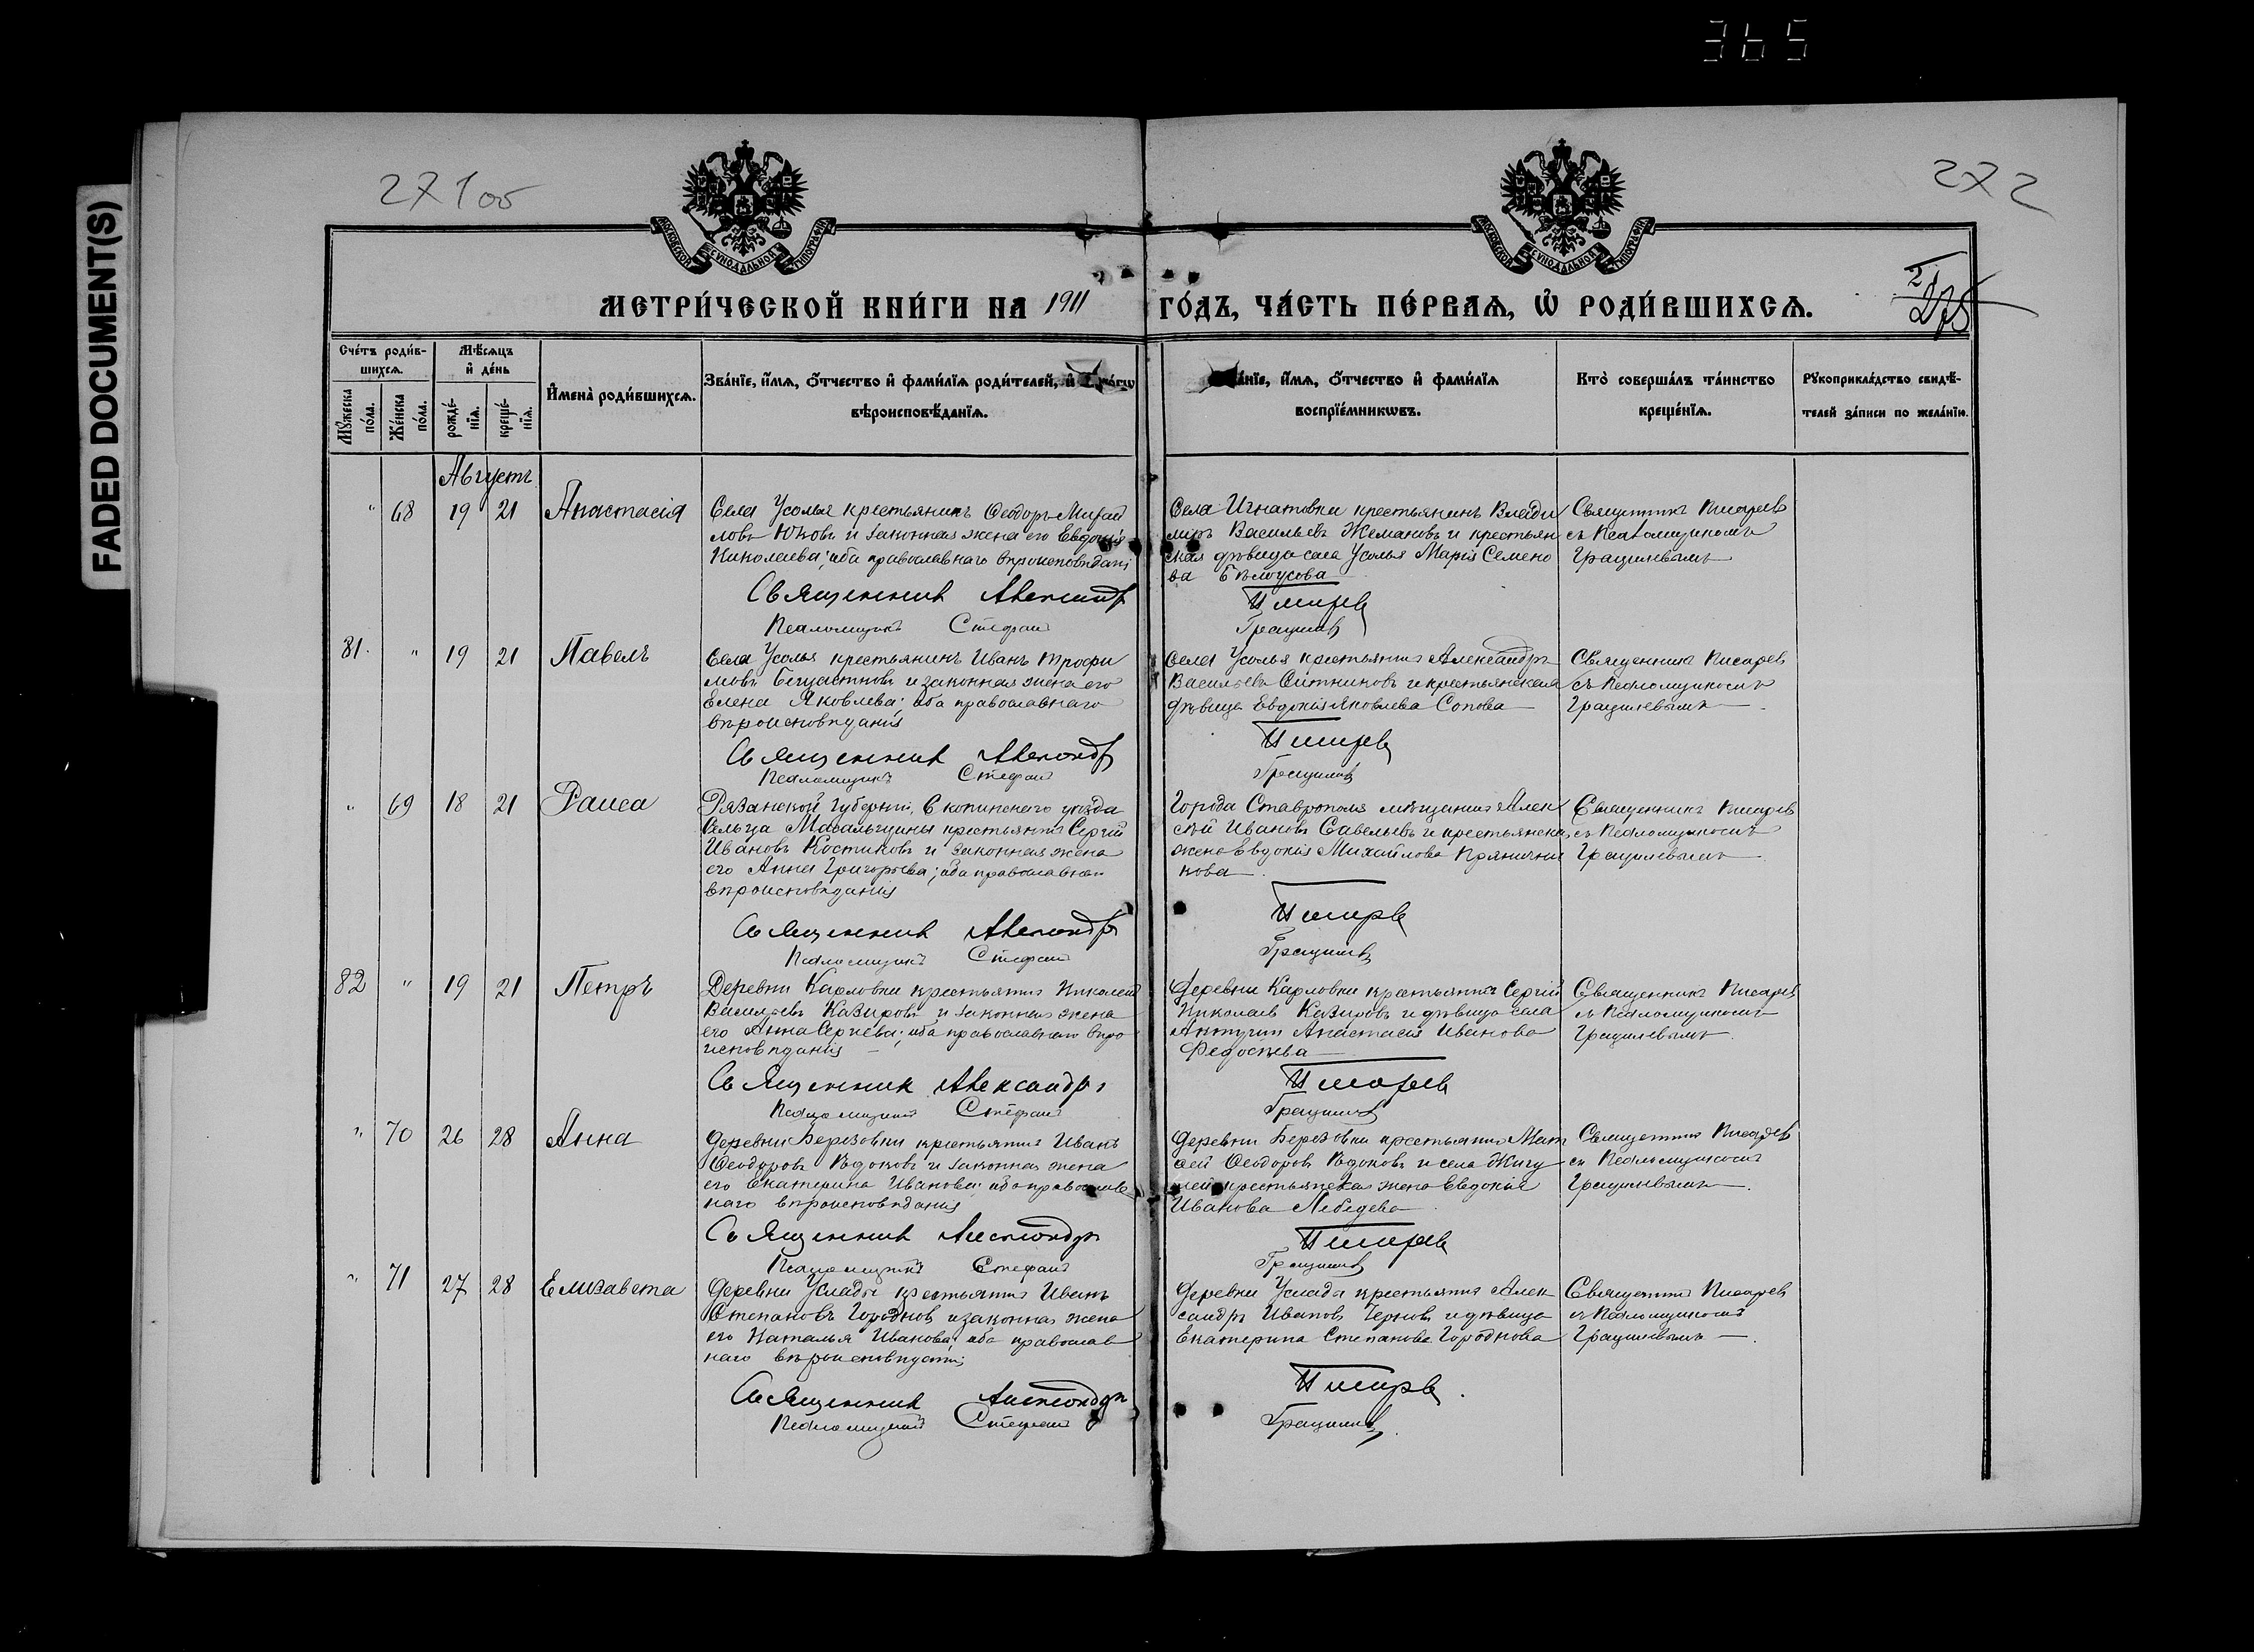 365
FADED DOCUMENT(S)
271 об
272
МОСКОВСКОЙ СѴНОДАЛЬНОЙ ТИПОГРАФІИ
МОСКОВСКОЙ СѴНОДАЛЬНОЙ ТИПОГРАФІИ
МЕТРИ́ЧЕСКОЙ КНИ́ГИ НА 1911 ГО́ДЪ, ЧА́СТЬ ПЕ́РВАѦ, Ѡ҆ РОДИ́ВШИХСѦ.
Сче́тъ роди́в-
шихсѧ.
Мꙋ́жеска по́ла.
Же́нска по́ла.
Мѣ́сѧцъ
и҆ де́нь
рожде́-
нїѧ.
креще́-
нїѧ.
И҆мена̀ роди́вшихсѧ.
Зва́нїе, и҆́мѧ, ѻ҆́тчество и҆ фами́лїѧ роди́телей, и҆
вѣроисповѣ́данїѧ.
а́нїе, и҆́мѧ, ѻ҆́тчество и҆ фами́лїѧ
воспрїе́мникѡвъ.
Кто̀ соверша́лъ та́инство
креще́нїѧ.
Рꙋкоприкла́дство свидѣ́-
телей за́писи по жела́нїю.
Августъ
" 68 19 21 Анастасія
Села Усолья крестьянинъ Ѳеодоръ Михаи
ловъ Юковъ и законная жена его Евдокія
Николаева; оба православнаго вѣроисповѣдані
Священникъ Александръ Писаревъ
Псаломщикъ Стефанъ Грацилевъ
Села Игнатовки крестьянинъ Влади
міръ Васильевъ Жемановъ и крестьян
ская дѣвица села Усолья Марія Семено
ва Бѣлоусова
Священникъ Писаревъ
съ Псаломщикомъ
Грацилевымъ
81. " 19 21 Павелъ
Села Усолья крестьянинъ Иванъ Трофи
мовъ и законная жена его
Елена Яковлева; оба православнаго
вѣроисповѣданія
Священникъ Александръ Писаревъ
Псаломщикъ Стефанъ Грацилевъ
Села Усолья крестьянинъ Александръ
Васильевъ Ситниковъ и крестьянская
дѣвица Евдокія Яковлева Сопова
Священникъ Писарев
съ Псаломщикомъ
Грацилевымъ
" 69 18 21 Раиса
Рязанской губерніи, Скопинскаго уѣзда
Сельца крестьянинъ Сергій
Ивановъ Костиковъ и законная жена
его Анна Григорьева; оба православнаго
вѣроисповѣданія
Священникъ Александръ Писаревъ
Псаломщикъ Стефанъ Грацилевъ
Города Ставрополя мѣщанинъ Алек
сѣй Ивановъ Савельевъ и крестьянска
жена Евдокія Михайлова Пряничн
кова
Священникъ Писаревъ
съ Псаломщикомъ
Грацилевымъ
82 " 19 21 Петръ
Деревни Карловки крестьянинъ Николай
Васильевъ Казировъ и законная жена
его Анна Сергѣева; оба православнаго вѣро
исповѣданія
Священник Александръ Писаревъ
Псаломщикъ Стефанъ Грацилевъ
Деревни Карловки крестьянинъ Сергій
Николаевъ Казировъ и дѣвица села
Актуши Анастасія Иванова
Ѳедосѣева
Священникъ Писаревъ
съ Псаломщикомъ
Грацилевымъ
" 70 26 28 Анна
Деревни Березовки крестьянинъ Иванъ
Ѳеодоровъ и законная жена
его Екатерина Иванова; оба православ
наго вѣроисповѣданія
Священникъ Александръ Писаревъ
Псаломщикъ Стефанъ Грацилевъ
Деревни Березовки крестьянинъ Мат
ѳей Ѳеодоровъ и села Жигу
лей крестьянская жена Евдокія
Иванова Лебедева
Священникъ Писаревъ
съ Псаломщикомъ
Грацилевымъ
" 71 27 28 Елизавета
Деревни Услады крестьянинъ Иванъ
Степановъ Городновъ и законная жена
его Наталья Иванова; оба православ
наго вѣроисповѣданія
Священникъ Александръ Писаревъ
Псаломщикъ Стефанъ Грацилевъ
Деревни Услады крестьянинъ Алек
сандръ Ивановъ Черновъ и дѣвица
Екатерина Степанова Городнова
Священникъ Писаревъ
съ Псаломщикомъ
Грацилевымъ